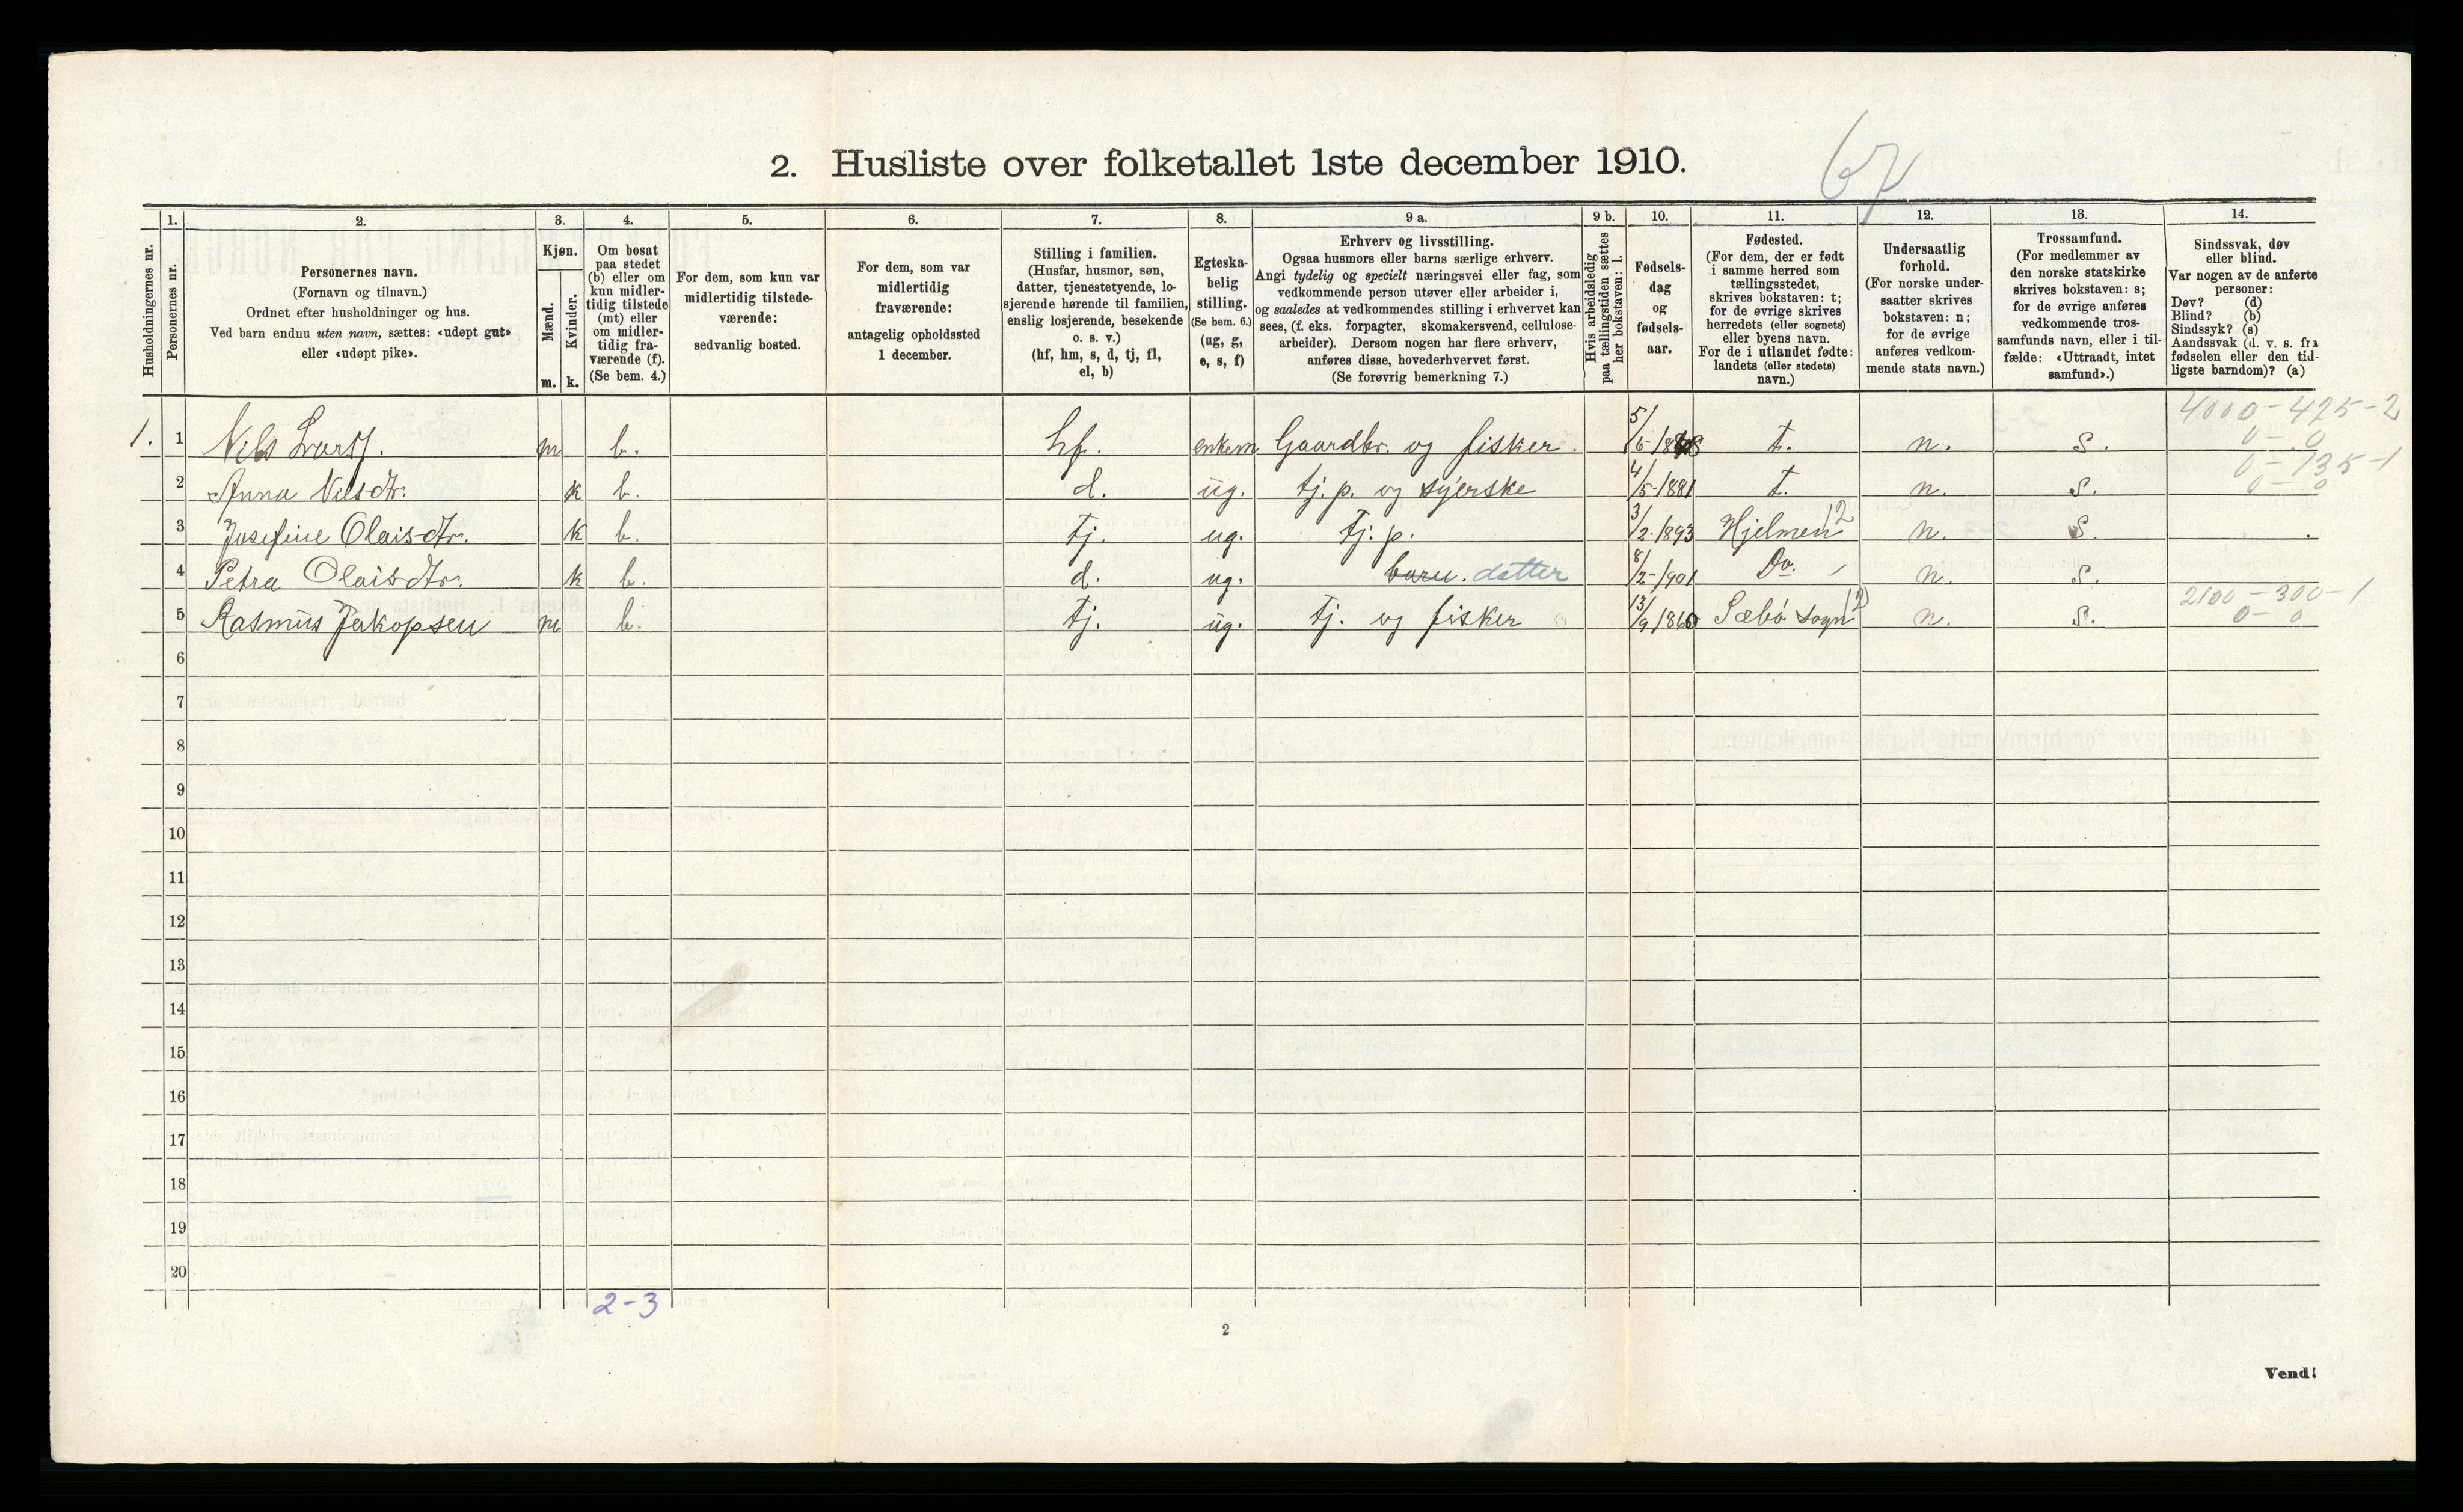 67
2. Husliste over folketallet 1ste december 1910.
Husholdningernes nr.
1.
Personernes nr.
2.
Personernes navn.
(Fornavn og tilnavn.)
Ordnet efter husholdninger og hus.
Ved barn endnu uten navn, sættes: «udøpt gut»
eller «udøpt pike».
3.
Kjøn.
Mænd.
Kvinder.
m. k.
4.
Om bosat
paa stedet
(b) eller om
kun midler-
tidig tilstede
(mt) eller
om midler-
tidig fra-
værende (f).
(Se bem. 4.)
5.
For dem, som kun var
midlertidig tilstede-
værende:
sedvanlig bosted.
6.
For dem, som var
midlertidig
fraværende:
antagelig opholdssted
1 december.
7.
Stilling i familien.
(Husfar, husmor, søn,
datter, tjenestetyende, lo-
sjerende hørende til familien,
enslig losjerende, besøkende
o. s. v.)
(hf, hm, s, d, tj, fl,
el, b)
8.
Egteska-
belig
stilling.
(Se bem. 6.)
(ug, g,
e, s, f)
9 a.
Erhverv og livsstilling.
Ogsaa husmors eller barns særlige erhverv.
Angi tydelig og specielt næringsvei eller fag, som
vedkommende person utøver eller arbeider i,
og saaledes at vedkommendes stilling i erhvervet kan
sees, (f. eks. forpagter, skomakersvend, cellulose-
arbeider). Dersom nogen har flere erhverv,
anføres disse, hovederhvervet først.
(Se forøvrig bemerkning 7.)
9 b.
Hvis arbeidsledig
paa tællingstiden sættes
her bokstaven: l.
10.
Fødsels-
dag
og
fødsels-
aar.
11.
Fødested.
(For dem, der er født
i samme herred som
tællingsstedet,
skrives bokstaven: t;
for de øvrige skrives
herredets (eller sognets)
eller byens navn.
For de i utlandet fødte:
landets (eller stedets)
navn.)
12.
Undersaatlig
forhold.
(For norske under-
saatter skrives
bokstaven: n;
for de øvrige
anføres vedkom-
mende stats navn.)
13.
Trossamfund.
(For medlemmer av
den norske statskirke
skrives bokstaven: s;
for de øvrige anføres
vedkommende tros-
samfunds navn, eller i til-
fælde: «Uttraadt, intet
samfund».)
14.
Sindssvak, døv
eller blind.
Var nogen av de anførte
personer:
Døv? (d)
Blind? (b)
Sindssyk? (s)
Aandssvak (d. v. s. fra
fødselen eller den tid-
ligste barndom)? (a)
4000-425-2
0-0
1. 1 Nils m b. hf. enkem Gaardbr. og fisker. t. n. s.
0-135-1
0-0
2 Anna Nilsdtr. k b. d. ug. tj.p. og syerske 4/5-1881 t. n. s.
3 Josefine Olaisdtr. k b. tj. ug. tj.p. 3/2-1893 Hjelmen 12 n. s.
4 Petra Olaisdtr. k b. d. ug. barn. datter 8/2-1901 Do. n. s.
2100-300-1
0-0
5 Rasmus Jakopsen m b. tj. ug. tj. og fisker 13/9 1860 Sæbö sogn 12 n. s.
6
7
8
9
10
11
12
13
14
15
16
17
18
19
20
2-3
2
Vend!